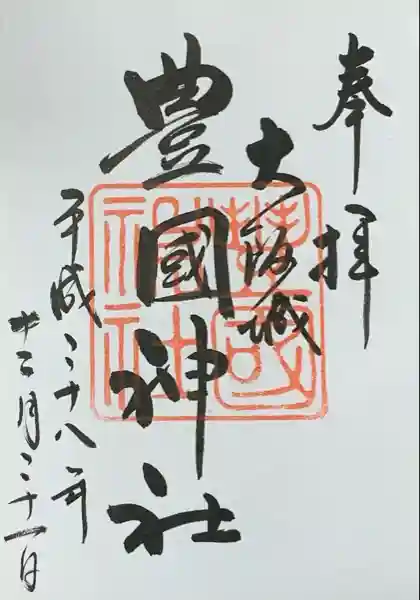 奉拝
大阪城
豊國神社
平成二十八年
十二月三十一日
豊國神社